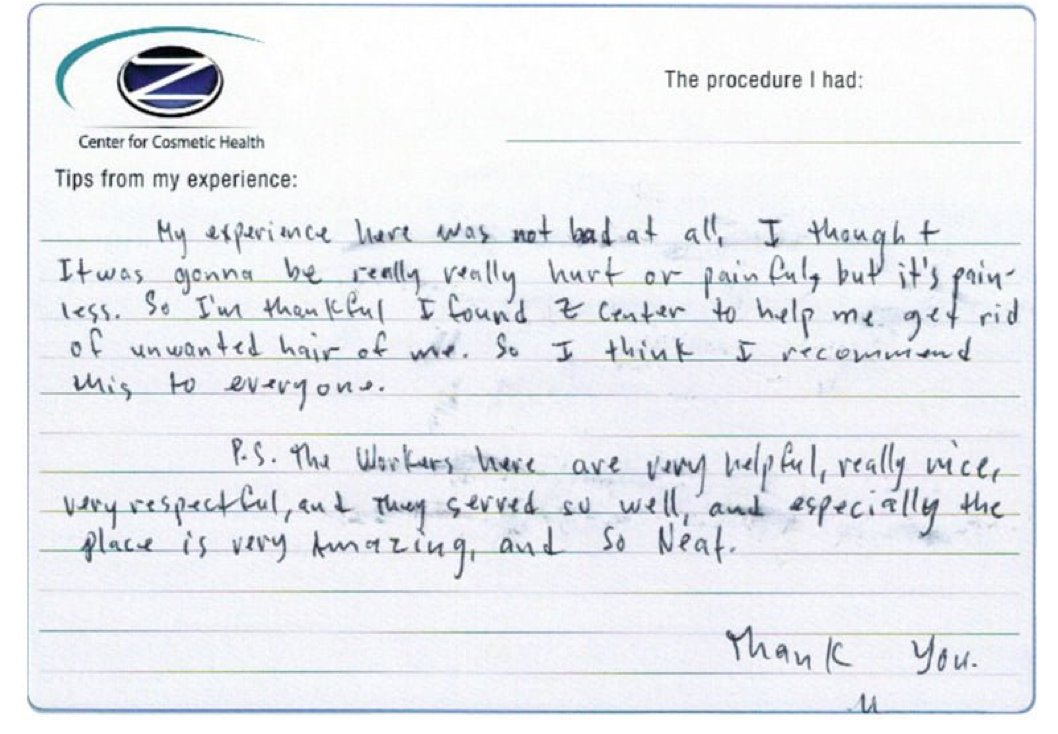 Z
The procedure I had:
Center for Cosmetic Health
Tips from my experience:
My experience here was not bad at all, I thought
It was gonna be really really hurt or painful, but it's pain-
less. So I'm thankful I found Z Center to help me get rid
of unwanted hair of me. So I think I recommend
this to everyone.
P.S. The Workers here are very helpful, really nice,
very respectful, and They served so well, and especially the
place is very Amazing, and so Neat.
Thank You.